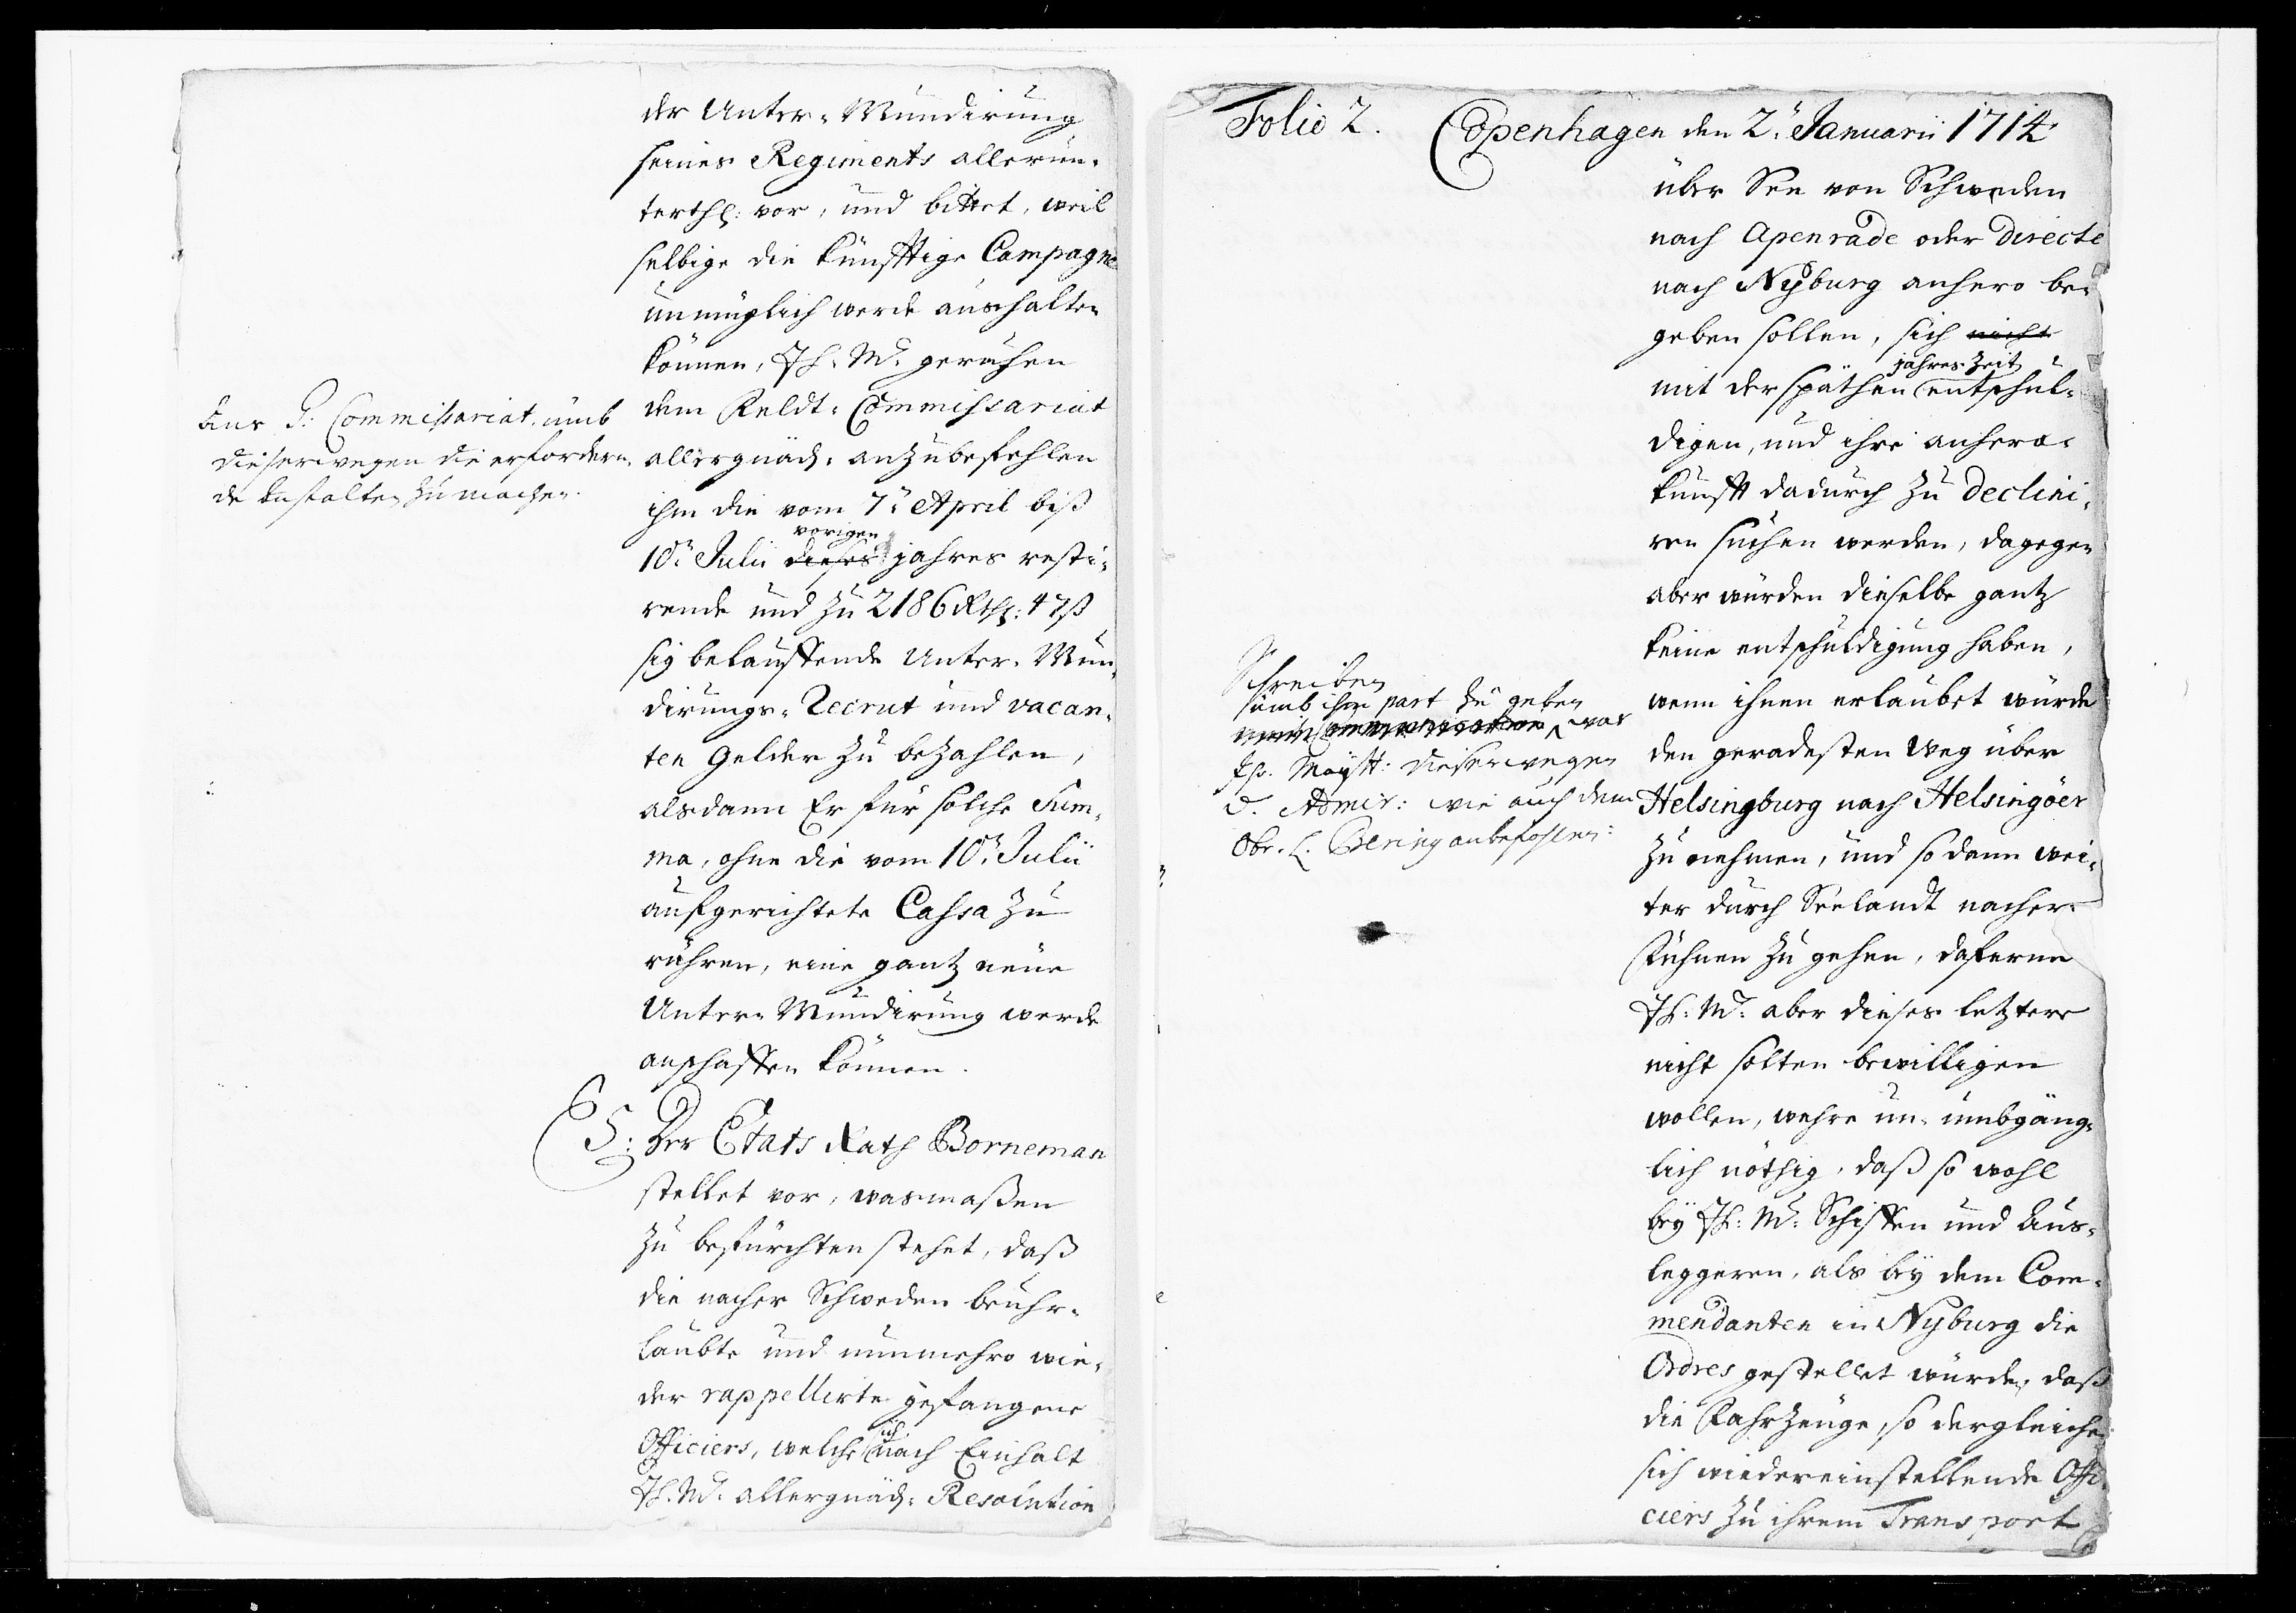 der Unter-Mundirung
seines Regiments allerun-
terthl: vor, und bittet, weil
selbige die künfftige Campagne
unmüglich werde aushalten
können, Ih. M. geruhen
dem Feldt-Commissariat
allergnäd: anzubefehlen
ihm die vom 7n April biß
vorigen
10n Julii dieses jahres resti-
rende und zu 2186 Rthl: 47ß
sig belauffende Unter-Mun-
dirungs-Recrut und vacan-
ten Gelder zu bezahlen,
alsdann Er für solche Sum-
ma, ohne die vom 10n Julii
aufgerichtete Cassa zu
rühren, eine gantz neue
Unter-Mundirung werde
anschaffen können.
Ans G: Commissariat umb
dieserwegen die erfordern-
de anstalten zu machen.
5: Der Etats Rath Borneman
stellet vor, wasmaßen
zu befürchten stehet, daß
die nacher Schweden beuhr-
laubte und nunmehro wie-
der rappellirte gefangene
Officiers, welche sich nach Einhalt
Ih. M. allergnäd: Resolution
Folio 2. Copenhagen den 2n Januarii 1714
über See von Schweden
nach Apenrade oder directe
nach Nyburg anhero be-
geben sollen, sich nicht
jahres Zeit
mit der späthen entschul-
digen, und ihre anhero-
kunfft dadurch zu declini-
ren suchen werden, dagegen
aber würden dieselbe gantz
keine entschuldigung haben,
wenn ihnen erlaubet würde
den geradesten Weg über
Helsingburg nach Helsingöer
zu nehmen, und so dann wei-
ter durch Seelandt nacher
Fühnen zu gehen, daferne
Ih: M. aber dieses letztere
nicht solten bewilligen
wollen, wehre un-umbgäng-
lich nöthig, daß so wohl
bey Ih: M. Schiffen und Aus-
leggeren, als bey dem Com-
mendanten in Nyburg die
Ordres gestellet würde, daß
die Fahrzeuge, so dergleichen
sich wiedereinstellende Offi-
ciers zu ihrem Transport
Schreiben
umb ihm part zu geben
was
Ih. Maÿtt: dieserwegen
d. Admir: wie auch dem
Obr. L. Bering anbefohlen: